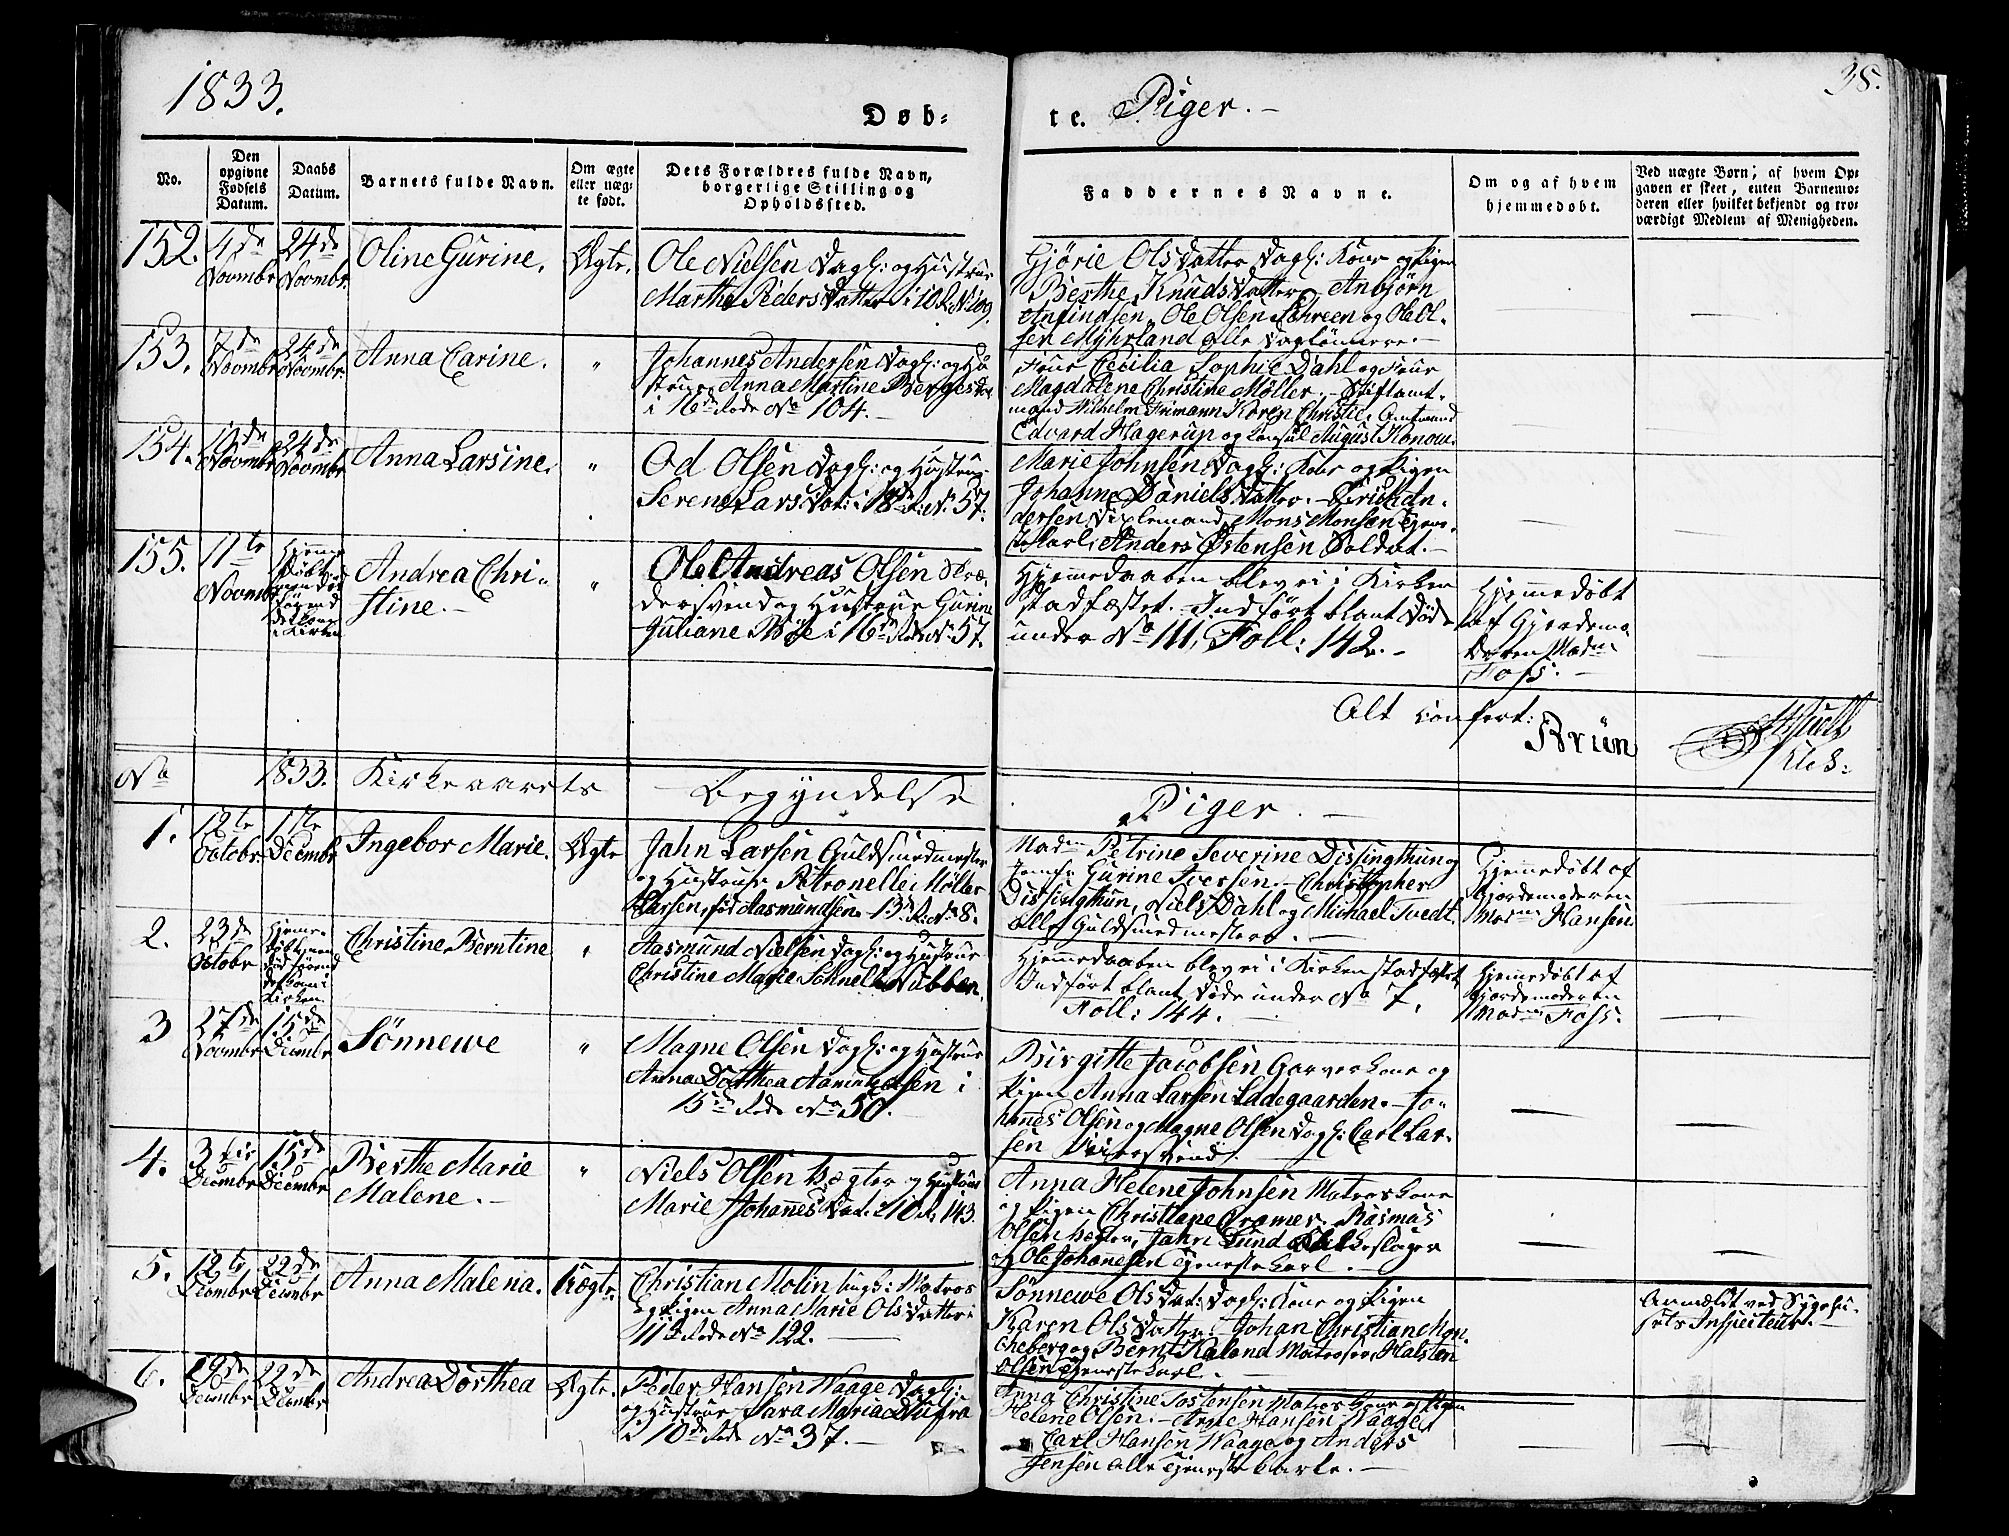 1833.
38.
Døb-
te. Piger.-
No.
Den opgivne Fødsels Datum.
Daabs Datum.
Barnets fulde Navn.
Om ægte eller uæg-
te født.
Dets Forældres fulde Navn,
borgerlige Stilling og
Opholdssted.
Faddernes Navne.
Om og af hvem
hjemmedøbt.
Ved uægte Børn; af hvem Op-
gaven er skeet, enten Barnemo-
deren eller hvilket bekjendt og tro-
værdigt Medlem af Menigheden.
152. 4de Novmbr 24de Novmbr. Oline Gurine. Ægte.
Ole Nielsen Dagl: og Hustrue
Marthe Peders Datter i 10 R. N. 109.
Gjørie Olsdatter Dagl: Kone og Pigen
Berthe Knudsdatter - Anbjørn
Anfindsen, Ole Olsen Schreen og Ole Ol-
sen Myhrland alle Daglønnere.-
153. 7de Novmbr 24de Novmbr. Anna Carine. "
Johannes Andersen Dagl: og Hu-
strue Anna Martine Berges Dat.
i 16de Rode No 104.-
Frue Cecilia Sophie Dahl og Frue
Magdalene Christine Møller,- Stiftamt-
mand Wilhelm Frimann Koren Christie, Amtmand
Edvard Hagerup og Consul August Konow.
154. 24de Novmbr Anna Larsine. "
Od Olsen Dagl: og Hustrue
Serene Lars Dat: i 18de R. N. 57.
Marie Johnsen Dagl: Kone og Pigen
Johanne Daniels Datter.- Erich An-
dersen Mons Monsen Tjene-
ste Karl, Anders Østensen Soldat.-
155. 11te Novmbr Hjemme-
døbt
i Kirken
Andrea Chri-
stine.- "
Ole Andreas Olsen Skræ-
dersvend og Hustrue Gurine
Juliane Bøe i 16de Rode No 57.
Hjemmedaaben blev ei i Kirken
stadfæstet.- Indført blant Døde
under No 111, Foll: 142.-
Hjemmedøbt
af Gjordemo-
deren Madm
Foss.-
Alt confert:
Brün
No 1833. Kirkeaarets Begyndelse Piger.-
1. 12te Octobr. 1ste Decmbr Ingebor Marie. Ægte
Jahn Larsen Guldsmedmester
og Hustrue Petronelle Møller
Larsen, fød Rasmundsen. 13de R. No 8.
Madm Petrine Severine Dissingthun og
Jomfr Gurine Iversen.- Christopher
Dissingthun, Niels Dahl og Michael Tvedt
alle Guldsmedmestere.-
Hjemmedøbt af
Gjordemoderen
Madm Hansen.
2. 23de Octobr Hjemme-
døbt men
død førend
det kom i
Kirken.
Christine Berntine "
Aasmund Nielsen Dagl: og Hustrue
Christine Marie Schnell Nubben.
Hjemmedaaben blev ei i Kirken stadfæstet,
Indført blant Døde under No 7,
Foll: 144.-
Hjemmedøbt af
Gjordemoderen
Madm Foss.
3 27de Novmbr 15de Decmbr Sønnewe "
Magne Olsen Dagl: og Hustrue
Anna Dorthea i
15de Rode No 50.
Birgitte Jacobsen Garver Kone og
Pigen Anna Larsen Ladegaarden.- Jo-
hannes Olsen og Magne Olsen Dagl: Carl Lar-
sen
4. 3die Decmbr 15de Decmbr Berthe Marie
Malene.- "
Niels Olsen Vægter og Hustrue
Marie Johannes Dat. i 10 R. 143.
Anna Helene Johnsen Matros Kone
og Pigen Christiane Cramer. Rasmus
Olsen Vægter, Jahn Lund
og Ole Johannesen Tjeneste Karl.
5. 12te Decmbr 22de Decmbr Anna Malena. Uægte.
Christian Molin Matros
og Pigen Anna Marie Olsdatter i
11te Rode No 122.-
Sønnewe Ols Dat: Dagl: Kone og Pigen
Karen Olsdatter.- Johan Christian Mon-
cheberg og Bernt Kaland Matroser, Halsten
Olsen Tjeneste Karl.-
Anmeldt ved Sygehu-
sets Inspecteur.-
6. 19de Decmbr 22de Decmbr Andrea Dorthea Ægte.
Peder Hansen Waage Dagl:
og Hustrue Sara Maria
i 10de Rode No 37.-
Anna Christine Tostensen Matros Kone og Pigen
Helene Olsen.- Arne Hansen Waage,
Carl Hansen Waage og Anders
Jensen alle Tjeneste Karle.-